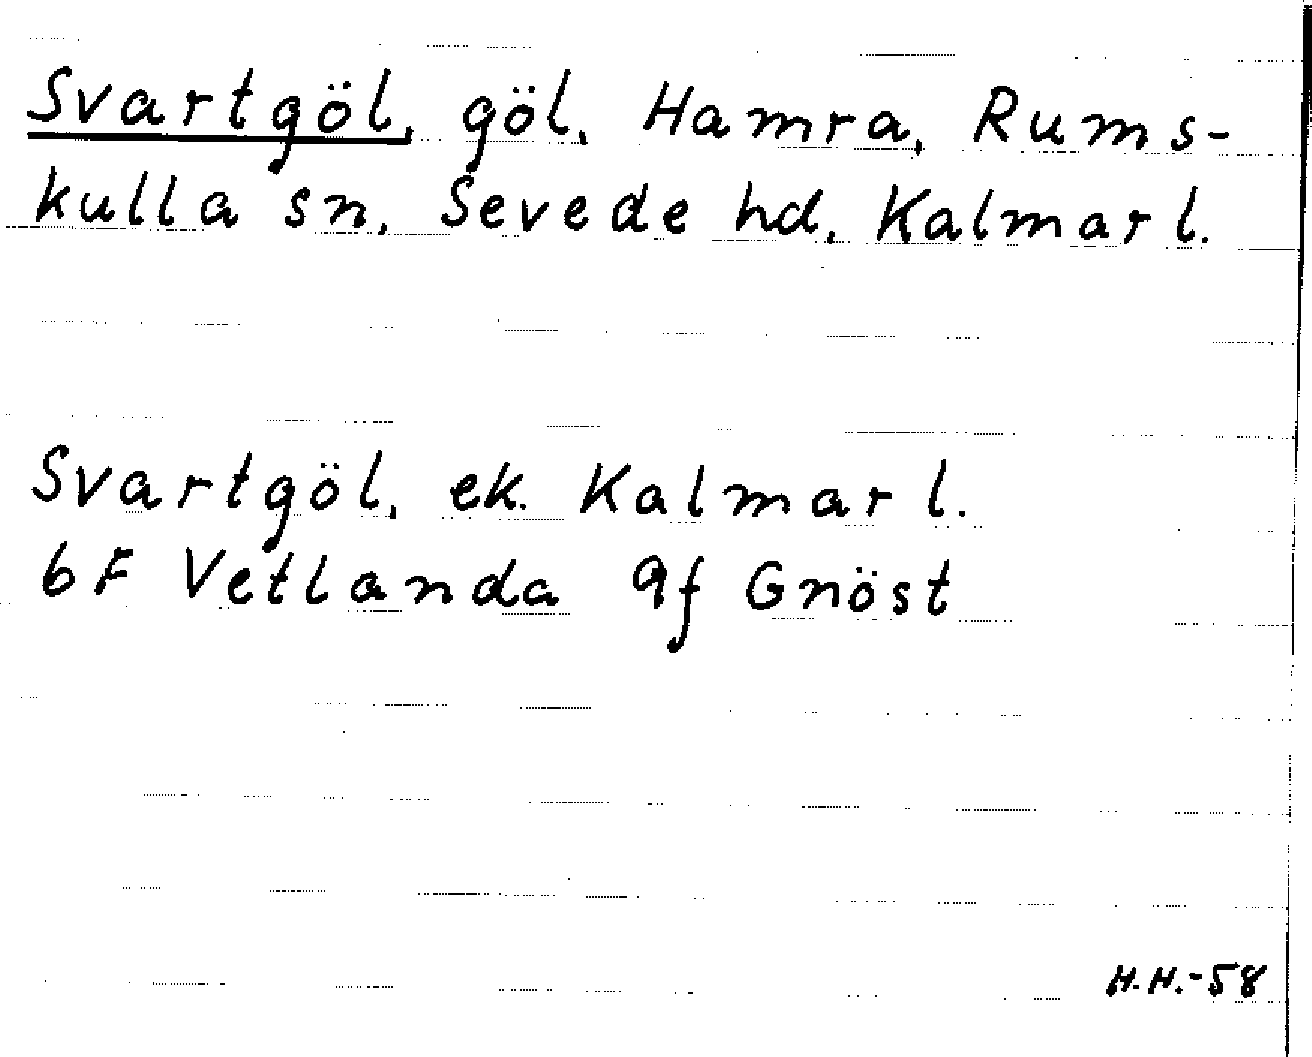 Svartgöl, göl, Hamra, Rums-
kulla sn, Sevede hd, Kalmar l.
Svartgöl, ek. Kalmar l.
6F Vetlanda 9f Gnöst
H.H.-58